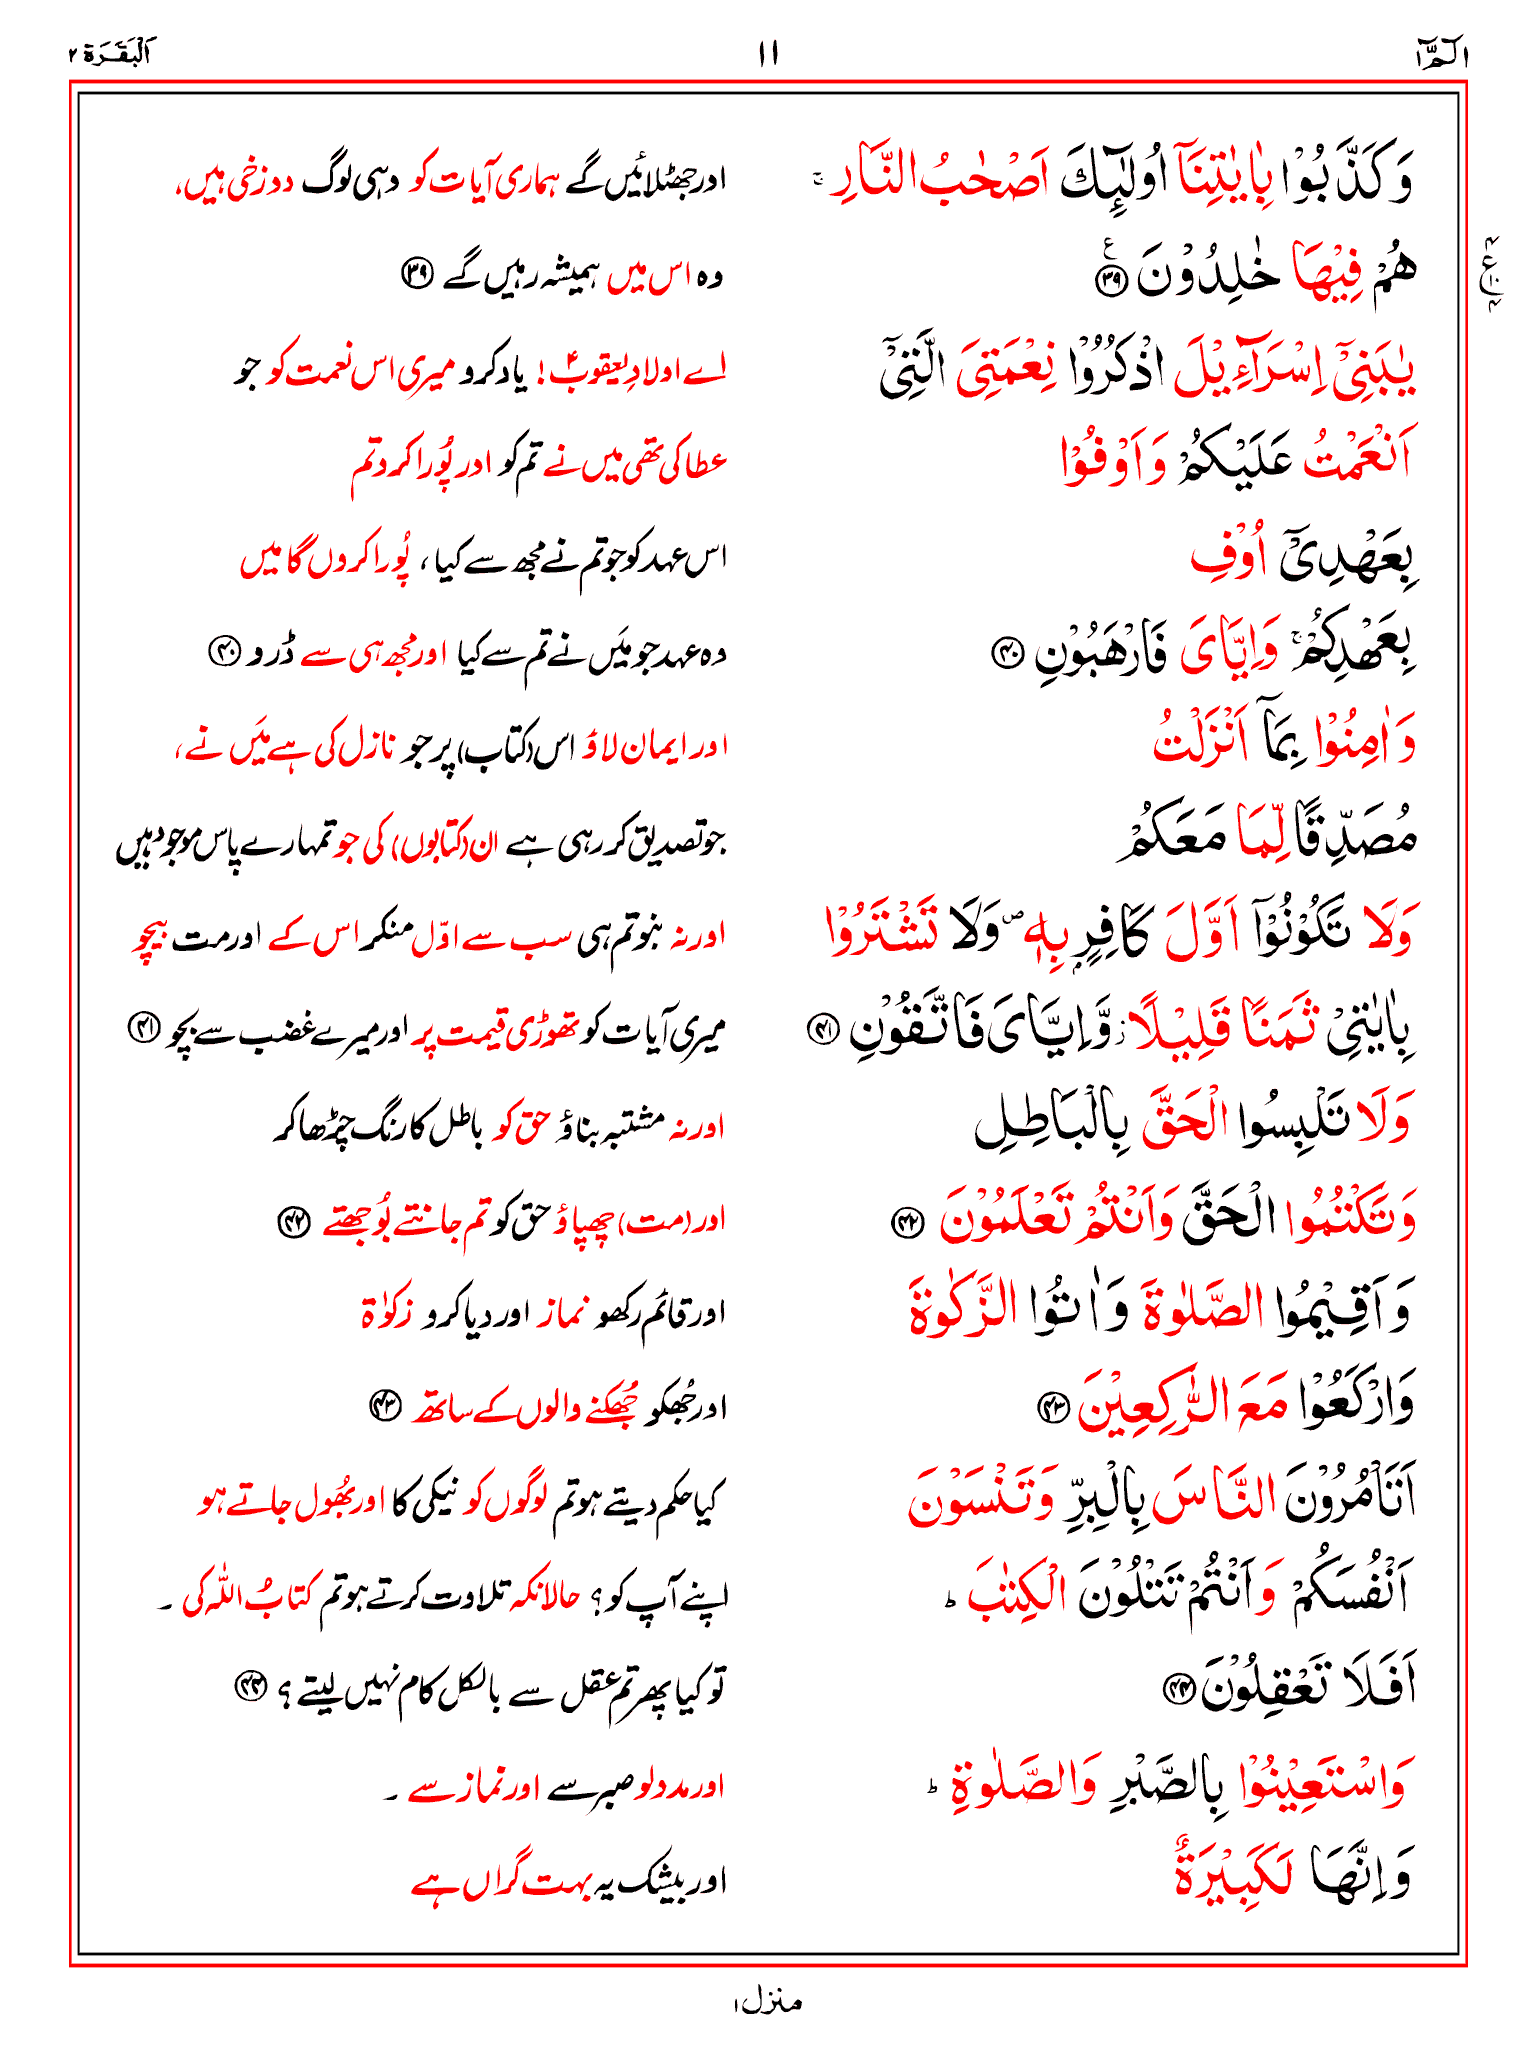 الٓمّٓ ۱
۱۱
اَلْبَقَرَة ۲
وَكَذَّبُوْا بِاٰيٰتِنَآ اُولٰٓئِكَ اَصْحٰبُ النَّارِ ۚ اور جھٹلائیں گے ہماری آیات کو وہی لوگ دوزخی ہیں،
هُمْ فِيْهَا خٰلِدُوْنَ ۳۹ وہ اس میں ہمیشہ رہیں گے ۳۹
ع
يٰبَنِىْٓ اِسْرَآءِيْلَ اذْكُرُوْا نِعْمَتِىَ الَّتِىْٓ اے اولادِ یعقوبؑ! یاد کرو میری اس نعمت کو جو
اَنْعَمْتُ عَلَيْكُمْ وَاَوْفُوْا عطا کی تھی میں نے تم کو اور پُورا کرو تم
بِعَهْدِىْٓ اُوْفِ اس عہد کو جو تم نے مجھ سے کیا، پُورا کروں گا میں
بِعَهْدِكُمْ ۚ وَاِيَّاىَ فَارْهَبُوْنِ ۴۰ وہ عہد جو مَیں نے تم سے کیا اور مجھ ہی سے ڈرو ۴۰
وَاٰمِنُوْا بِمَآ اَنْزَلْتُ اور ایمان لاؤ اس (کتاب) پر جو نازل کی ہے مَیں نے،
مُصَدِّقًا لِّمَا مَعَكُمْ جو تصدیق کر رہی ہے ان (کتابوں) کی جو تمہارے پاس موجود ہیں
وَلَا تَكُوْنُوْٓا اَوَّلَ كَافِرٍۭ بِهٖ ۖ وَلَا تَشْتَرُوْا اور نہ بنو تم ہی سب سے اوّل منکر اس کے اور مت بیچو
بِاٰيٰتِىْ ثَمَنًا قَلِيْلًا ؗ وَّاِيَّاىَ فَاتَّقُوْنِ ۴۱ میری آیات کو تھوڑی قیمت پر اور میرے غضب سے بچو ۴۱
وَلَا تَلْبِسُوا الْحَقَّ بِالْبَاطِلِ اور نہ مشتبہ بناؤ حق کو باطل کا رنگ چڑھا کر
وَتَكْتُمُوا الْحَقَّ وَاَنْتُمْ تَعْلَمُوْنَ ۴۲ اور (مت) چھپاؤ حق کو تم جانتے بُوجھتے ۴۲
وَاَقِيْمُوا الصَّلٰوةَ وَاٰتُوا الزَّكٰوةَ اور قائم رکھو نماز اور دیا کرو زکوٰۃ
وَارْكَعُوْا مَعَ الرّٰكِعِيْنَ ۴۳ اور جُھکو جُھکنے والوں کے ساتھ ۴۳
اَتَاْمُرُوْنَ النَّاسَ بِالْبِرِّ وَتَنْسَوْنَ کیا حکم دیتے ہو تم لوگوں کو نیکی کا اور بُھول جاتے ہو
اَنْفُسَكُمْ وَاَنْتُمْ تَتْلُوْنَ الْكِتٰبَ ؕ اپنے آپ کو؟ حالانکہ تلاوت کرتے ہو تم کتابُ اللہ کی ۔
اَفَلَا تَعْقِلُوْنَ ۴۴ تو کیا پھر تم عقل سے بالکل کام نہیں لیتے؟ ۴۴
وَاسْتَعِيْنُوْا بِالصَّبْرِ وَالصَّلٰوةِ ؕ اور مدد لو صبر سے اور نماز سے ۔
وَاِنَّهَا لَكَبِيْرَةٌ اور بیشک یہ بہت گراں ہے
منزل ۱